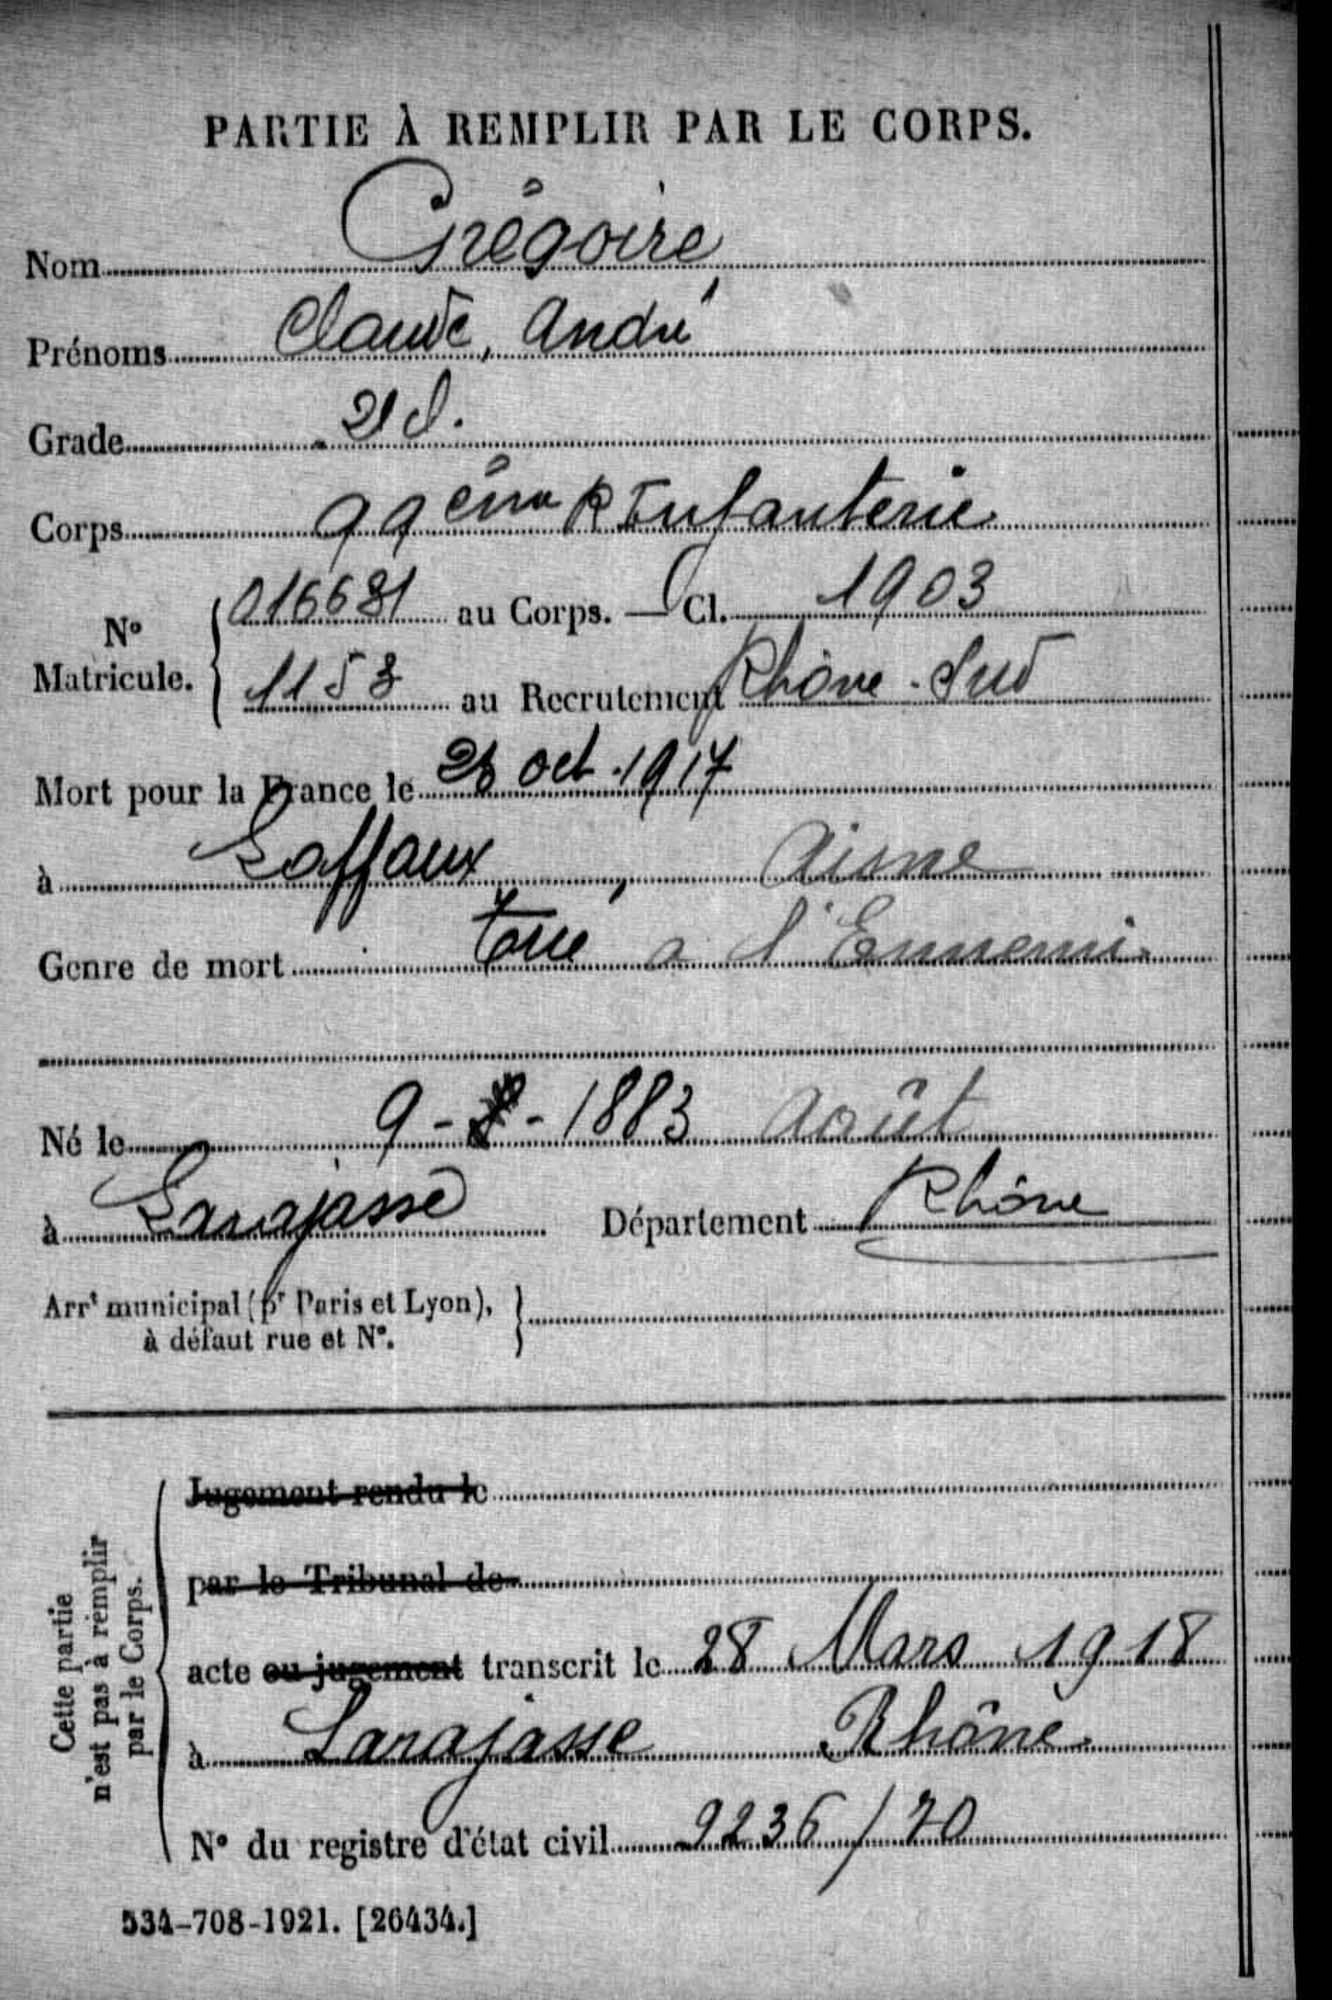 PARTIE À REMPLIR PAR LE CORPS.
Nom Grégoire
Prénoms Claude, André
Grade 2e S.
Corps 99ème R Infanterie
N° Matricule. 016681 au Corps. — Cl. 1903
1153 au Recrutement Rhône-Sud
Mort pour la France le oct. 1917
à Laffaux, Aisne
Genre de mort Tué a l'Ennemi.
Né le 9 - 8 - 1883 Août
à Larajasse Département Rhône
Arrt municipal (pr Paris et Lyon),
à défaut rue et N°.
Cette partie
n'est pas à remplir
par le Corps.
Jugement rendu le
par le Tribunal de
acte ou jugement transcrit le 28 Mars 1918
à Larajasse Rhône.
N° du registre d'état civil 9236/70
534-708-1921. [26434.]